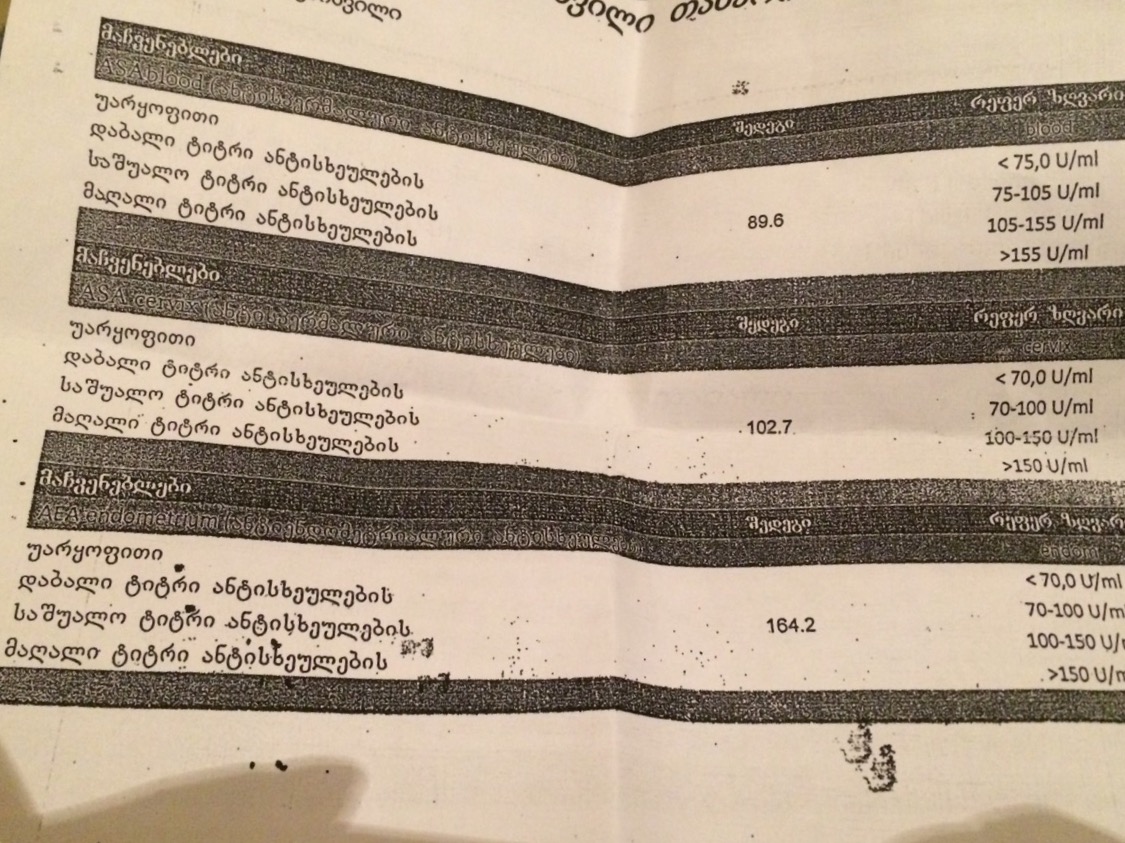 მაჩვენებლები შედეგი რეფერ ზღვარი
ASA blood (ანტისპერმალური ანტისხეულები) blood
უარყოფითი < 75,0 U/ml
დაბალი ტიტრი ანტისხეულების 75-105 U/ml
საშუალო ტიტრი ანტისხეულების 89.6 105-155 U/ml
მაღალი ტიტრი ანტისხეულების >155 U/ml
მაჩვენებლები შედეგი რეფერ ზღვარი
ASA cervix (ანტისპერმალური ანტისხეულები) cervix
უარყოფითი < 70,0 U/ml
დაბალი ტიტრი ანტისხეულების 70-100 U/ml
საშუალო ტიტრი ანტისხეულების 102.7 100-150 U/ml
მაღალი ტიტრი ანტისხეულების >150 U/ml
მაჩვენებლები შედეგი რეფერ ზღვარ
AEA endometrium (ანტიენდომეტრიალური ანტისხეულები) endom
უარყოფითი < 70,0 U/ml
დაბალი ტიტრი ანტისხეულების 70-100 U/m
საშუალო ტიტრი ანტისხეულების 164.2 100-150 U/
მაღალი ტიტრი ანტისხეულების >150 U/m